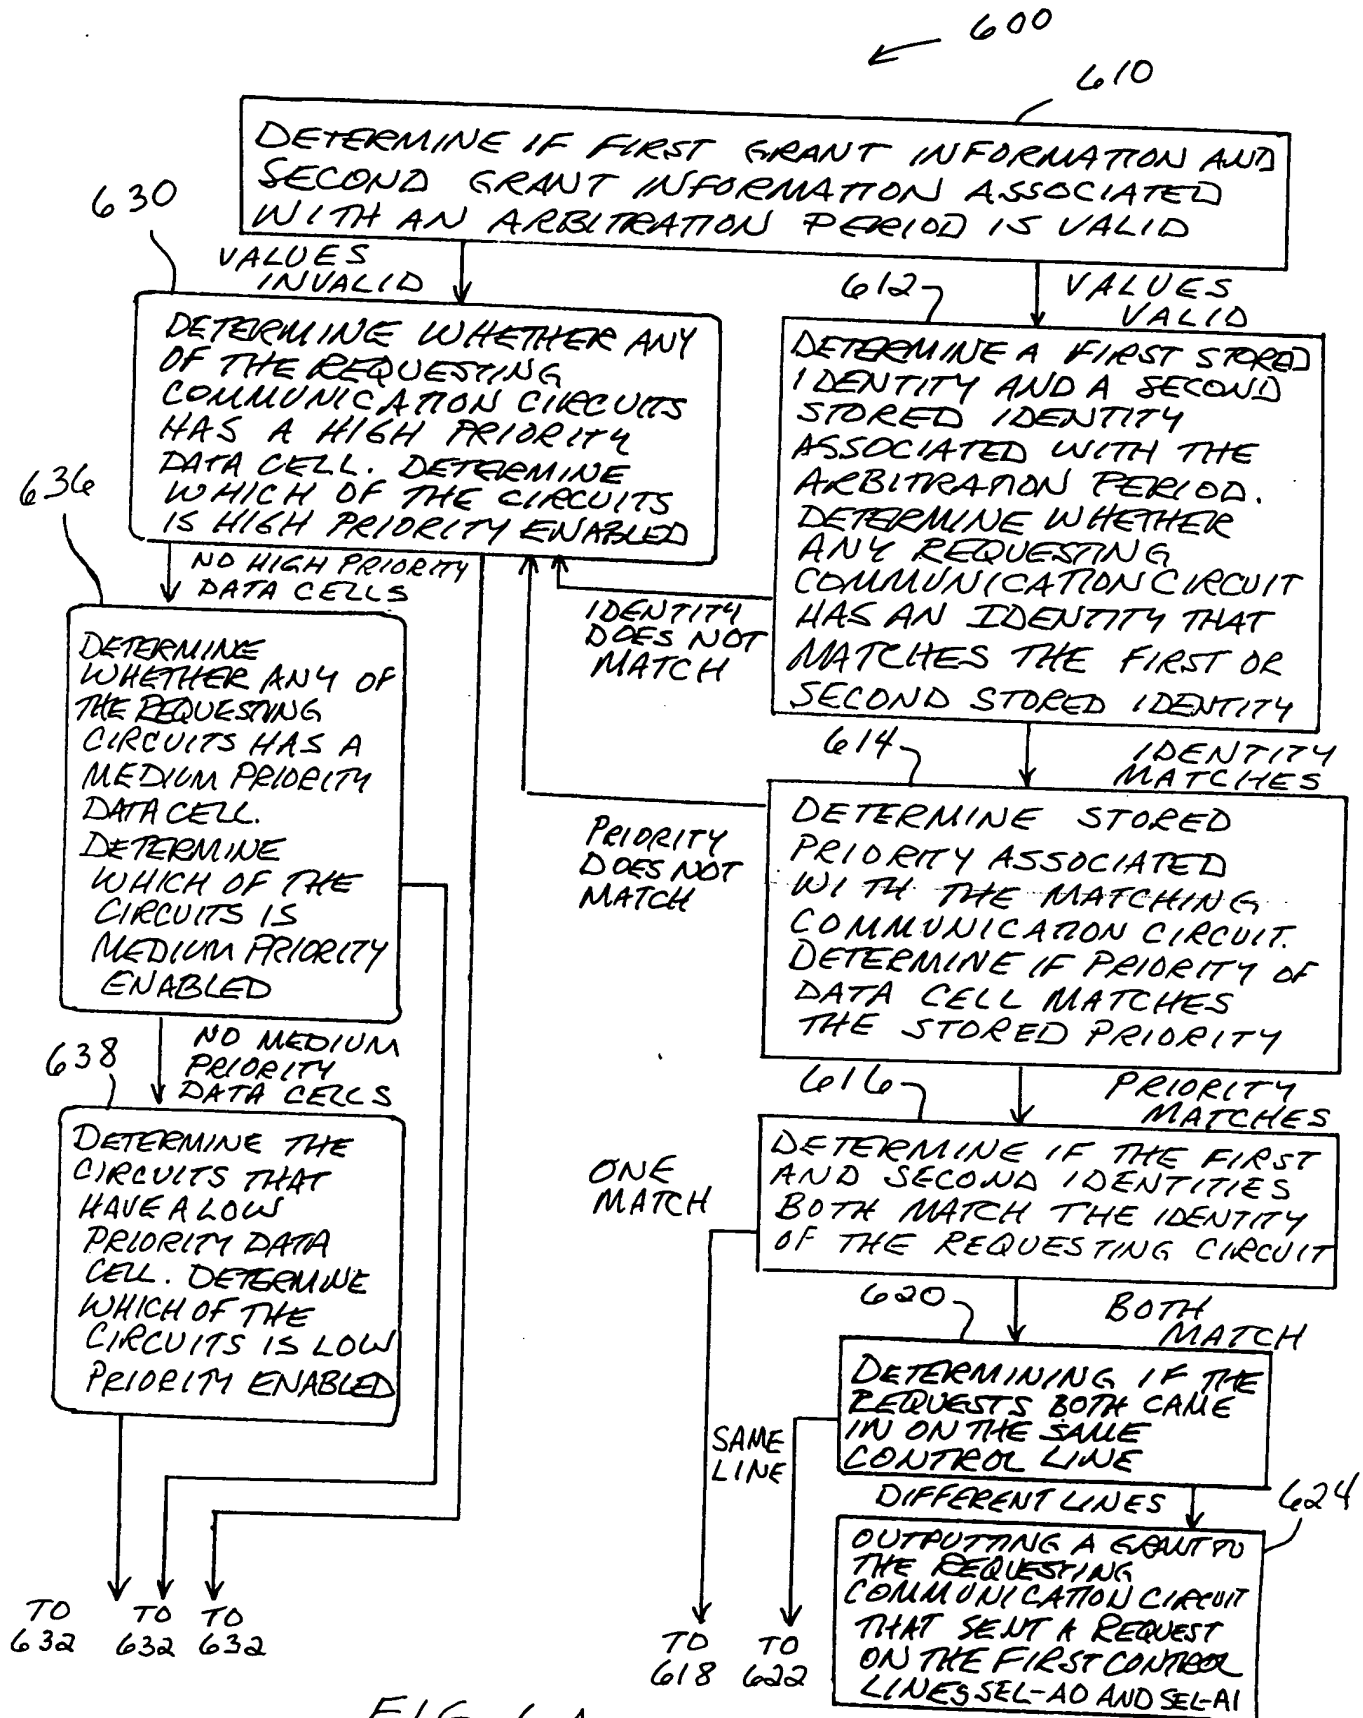 600
610
DETERMINE IF FIRST GRANT INFORMATION AND
SECOND GRANT INFORMATION ASSOCIATED
WITH AN ARBITRATION PERIOD IS VALID
630
VALUES
INVALID
612
VALUES
VALID
DETERMINE WHETHER ANY
OF THE REQUESTING
COMMUNICATION CIRCUITS
HAS A HIGH PRIORITY
DATA CELL. DETERMINE
WHICH OF THE CIRCUITS
IS HIGH PRIORITY ENABLED
DETERMINE A FIRST STORED
IDENTITY AND A SECOND
STORED IDENTITY
ASSOCIATED WITH THE
ARBITRATION PERIOD.
DETERMINE WHETHER
ANY REQUESTING
COMMUNICATION CIRCUIT
HAS AN IDENTITY THAT
MATCHES THE FIRST OR
SECOND STORED IDENTITY
636
NO HIGH PRIORITY
DATA CELLS
IDENTITY
DOES NOT
MATCH
DETERMINE
WHETHER ANY OF
THE REQUESTING
CIRCUITS HAS A
MEDIUM PRIORITY
DATA CELL.
DETERMINE
WHICH OF THE
CIRCUITS IS
MEDIUM PRIORITY
ENABLED
614
IDENTITY
MATCHES
PRIORITY
DOES NOT
MATCH
DETERMINE STORED
PRIORITY ASSOCIATED
WITH THE MATCHING
COMMUNICATION CIRCUIT.
DETERMINE IF PRIORITY OF
DATA CELL MATCHES
THE STORED PRIORITY
638
NO MEDIUM
PRIORITY
DATA CELLS
616
PRIORITY
MATCHES
DETERMINE THE
CIRCUITS THAT
HAVE A LOW
PRIORITY DATA
CELL. DETERMINE
WHICH OF THE
CIRCUITS IS LOW
PRIORITY ENABLED
ONE
MATCH
DETERMINE IF THE FIRST
AND SECOND IDENTITIES
BOTH MATCH THE IDENTITY
OF THE REQUESTING CIRCUIT
620
BOTH
MATCH
DETERMINING IF THE
REQUESTS BOTH CAME
IN ON THE SAME
CONTROL LINE
SAME
LINE
DIFFERENT LINES
624
OUTPUTTING A GRANT TO
THE REQUESTING
COMMUNICATION CIRCUIT
THAT SENT A REQUEST
ON THE FIRST CONTROL
LINES SEL-A0 AND SEL-A1
TO
632
TO
632
TO
632
TO
618
TO
622